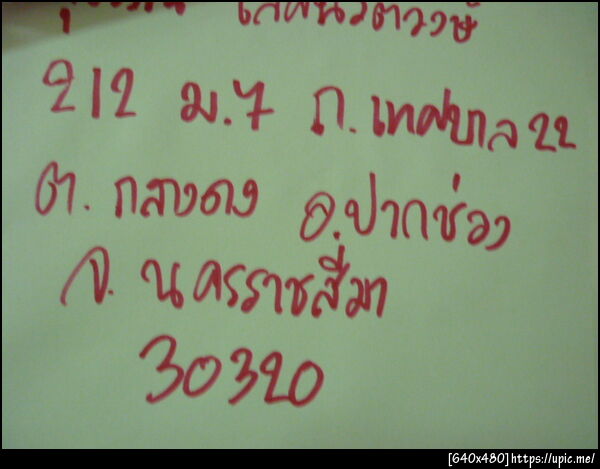 212 ม.7 ถ.เทศบาล 22
ต. กลางดง อ.ปากช่อง
จ. นครราชสีมา
30320
[640x480]https://upic.me/